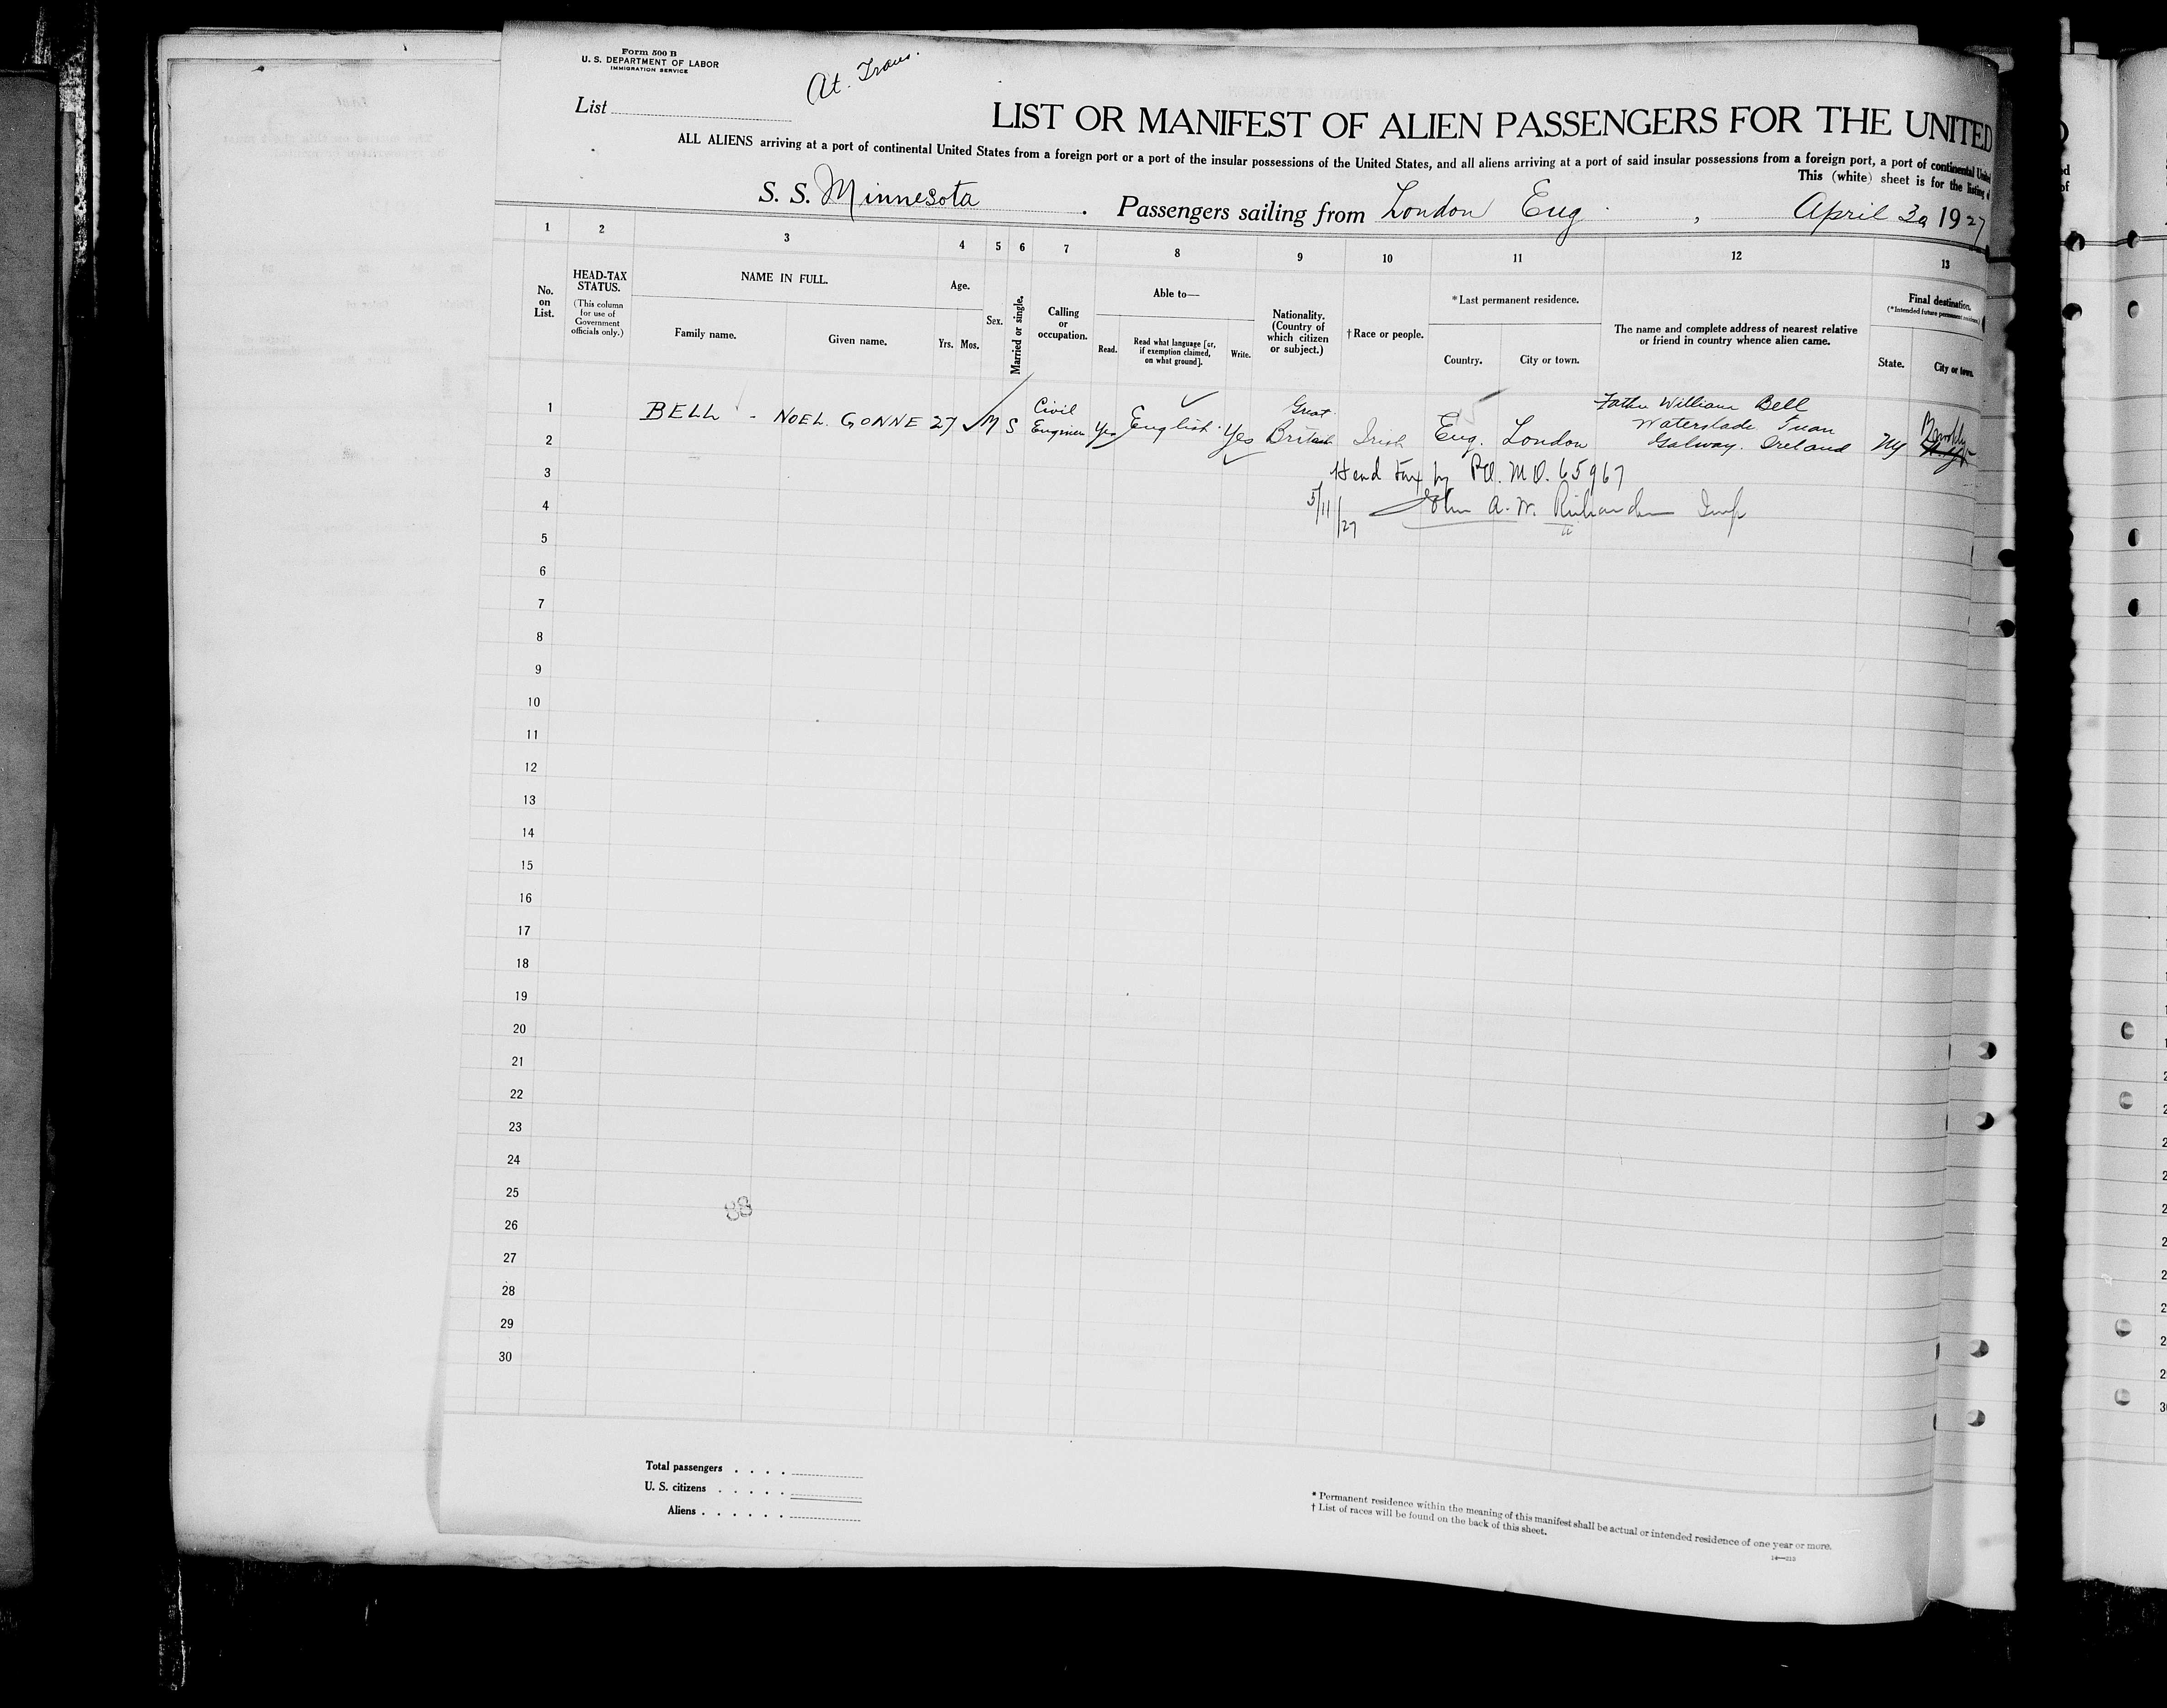 Form 500 B
U. S. DEPARTMENT OF LABOR
IMMIGRATION SERVICE
At. Trans.
List
LIST OR MANIFEST OF ALIEN PASSENGERS FOR THE UNITED
ALL ALIENS arriving at a port of continental United States from a foreign port or a port of the insular possessions of the United States, and all aliens arriving at a port of said insular possessions from a foreign port, a port of continental United
This (white) sheet is for the listing of
S. S. Minnesota . Passengers sailing from London Eng , April 30 1927
1 2 3 4 5 6 7 8 9 10 11 12 13
No. on List.
HEAD-TAX STATUS.
(This column for use of Government officials only.)
NAME IN FULL.
Family name. Given name.
Age.
Yrs. Mos.
Sex.
Married or single.
Calling or occupation.
Able to—
Read.
Read what language [or, if exemption claimed, on what ground].
Write.
Nationality. (Country of which citizen or subject.)
†Race or people.
*Last permanent residence.
Country. City or town.
The name and complete address of nearest relative or friend in country whence alien came.
Final destination.
(*Intended future permanent residence)
State. City or town.
1 BELL - NOEL. GONNE 27 M S Civil Engineer Yes English Yes Great Britain Irish Eng. London Father William Bell
Waterslade Tuam
Galway. Ireland NY Brooklyn
2
3 Head tax by P.O. M.O. 65967
4 5/11/27 John A. W. Richardson Insp
5
6
7
8
9
10
11
12
13
14
15
16
17
18
19
20
21
22
23
24
25
88
26
27
28
29
30
Total passengers . . . .
U. S. citizens . . . . .
Aliens . . . . . .
* Permanent residence within the meaning of this manifest shall be actual or intended residence of one year or more.
† List of races will be found on the back of this sheet.